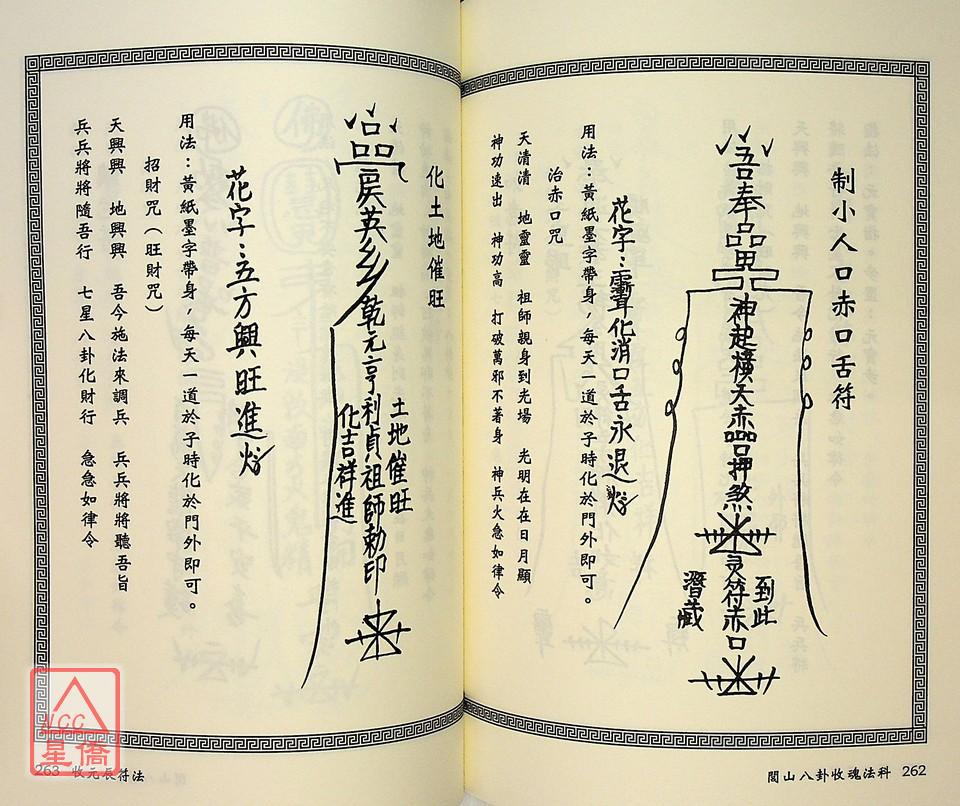 制小人口赤口舌符
吾奉
神起橫天赤
口押煞
灵符赤口
到此
潛藏
化消口舌永退
花字：
用法：黃紙墨字帶身，每天一道於子時化於門外即可。
治赤口咒
天清清　地靈靈　祖師親身到光場　光明在在日月顯
神功速出　神功高　打破萬邪不著身　神兵火急如律令
閭山八卦收魂法科　262
化土地催旺
乾元亨利貞祖師勅印
土地催旺
化吉祥進
花字：五方興旺進
用法：黃紙墨字帶身，每天一道於子時化於門外即可。
招財咒（旺財咒）
天興興　地興興　吾今施法來調兵　兵兵將將聽吾旨
兵兵將將隨吾行　七星八卦化財行　急急如律令
263　收元辰符法
NCC
星僑